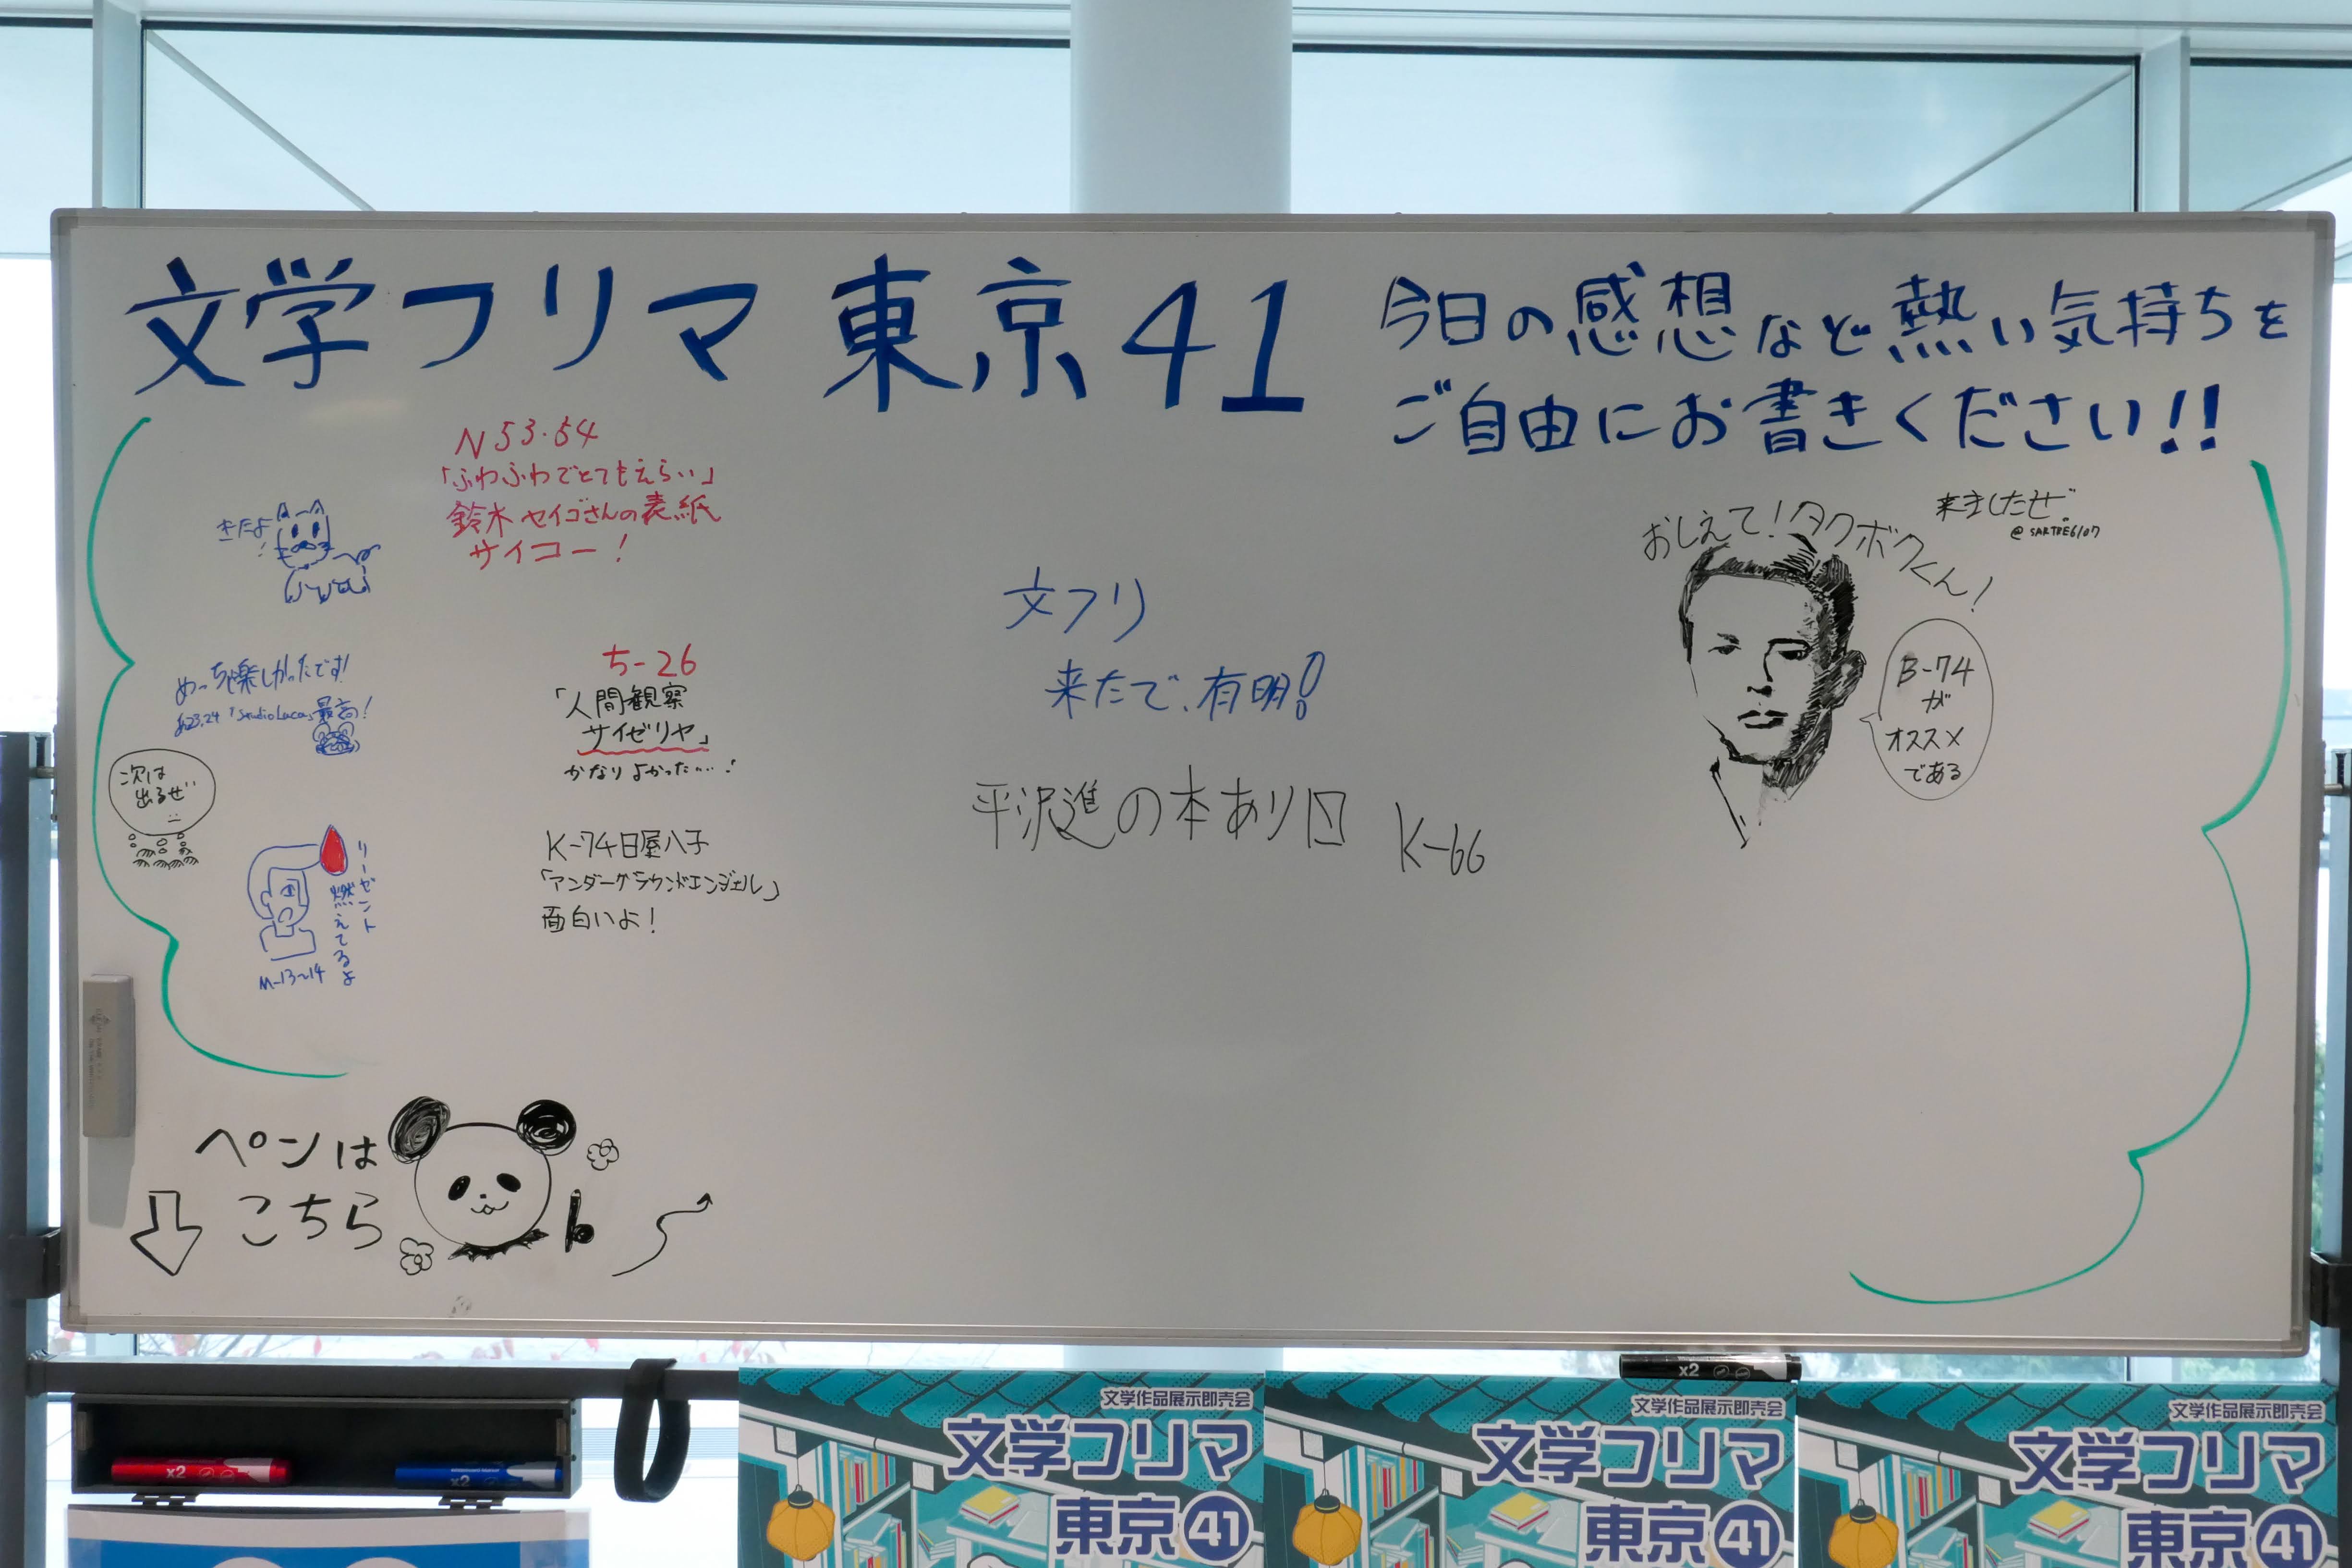 文学フリマ 東京41
今日の感想など熱い気持ちを
ご自由にお書きください!!
N53・54
「ふわふわでとてもえらい」
鈴木セイゴさんの表紙
サイコー!
きたよ
!
めっちゃ楽しかったです!
あ23.24「Studio Luca」最高!
次は
出るぜ
リーゼント
燃えてるよ
M-13~14
ち-26
「人間観察
サイゼリヤ」
かなりよかった…!
K-74日屋八子
「アンダーグラウンドエンジェル」
面白いよ!
文フリ
来たで、有明!
平沢進の本あり〼 K-66
おしえて!タクボクくん!
来ましたぜ。
B-74
が
オススメ
である
ペンは
こちら
x2
x2
x2
文学作品展示即売会
文学フリマ
東京41
文学作品展示即売会
文学フリマ
東京41
文学作品展示即売会
文学フリマ
東京41